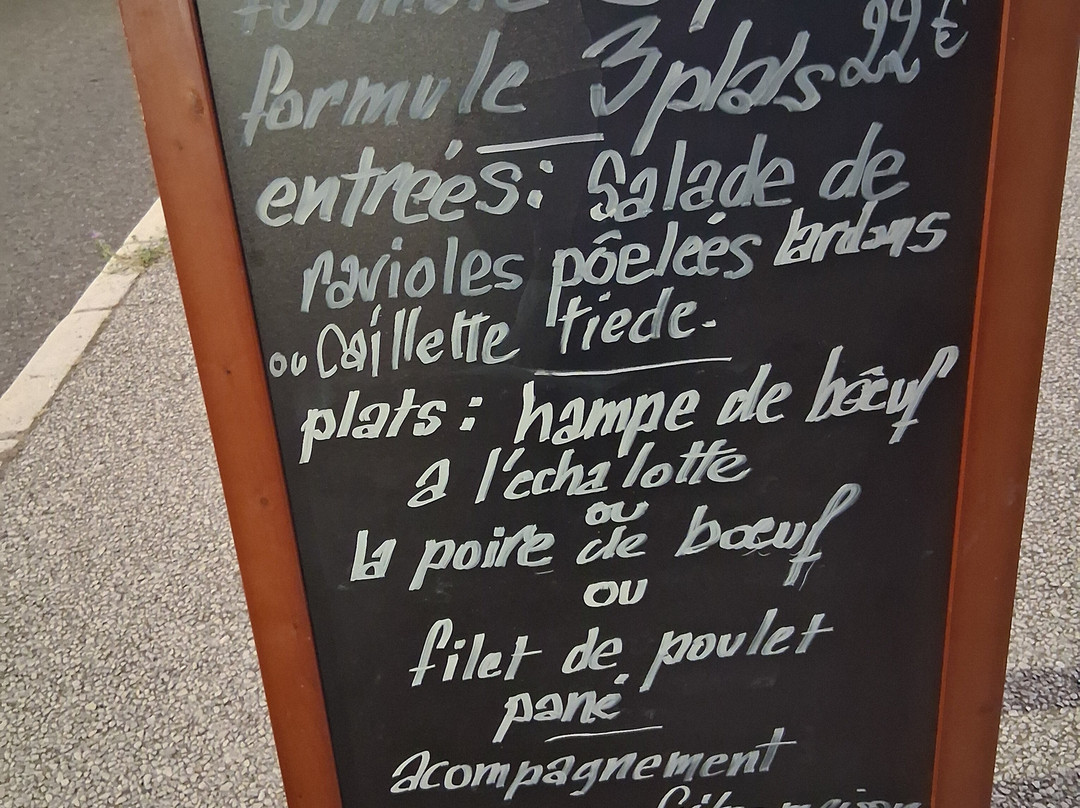 formule
formule 3 plats 22 €
entreés: Salade de
ravioles pôeleés lardons
ou Caillette tiede.
plats: hampe de bôeuf
a l'échalotte
ou
la poire de bœuf
ou
filet de poulet
pané
acompagnement